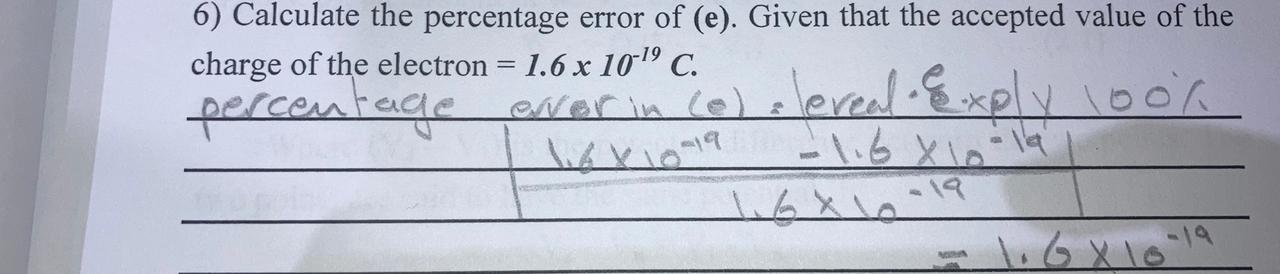 6) Calculate the percentage error of (e). Given that the accepted value of the
charge of the electron = 1.6 x 10⁻¹⁹ C.
percentage error in (e) = |ereal - eexp| x 100%
| 1.6 x 10⁻¹⁹ - 1.6 x 10⁻¹⁹ |
1.6 x 10⁻¹⁹
= 1.6 x 10⁻¹⁹